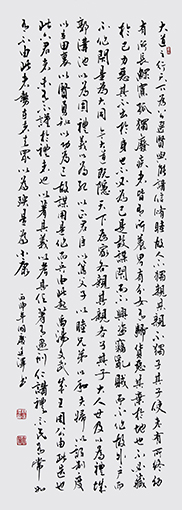 大道之行也天下為公選賢與能講信修睦故人不獨親其親不獨子其子使老有所終幼
有所長鰥寡孤獨廢疾者皆有所養男有分女有歸貨惡其棄於地也不必藏
於己力惡其不出於身也不必為己是故謀閉而不興盜竊亂賊而不作故外戶而
不閉是為大同今大道既隱天下為家各親其親各子其子大人世及以為禮城
郭溝池以為固禮義以為紀以正君臣以篤父子以睦兄弟以和夫婦以設制度
以立田里以賢勇知以功為己故謀用是作而兵由此起禹湯文武成王周公由此其選也
此六君子者未有不謹於禮者也以著其義以考其信著有過刑仁講讓示民有常如
有不由此者在執者去眾以為殃是為小康
丙申年書